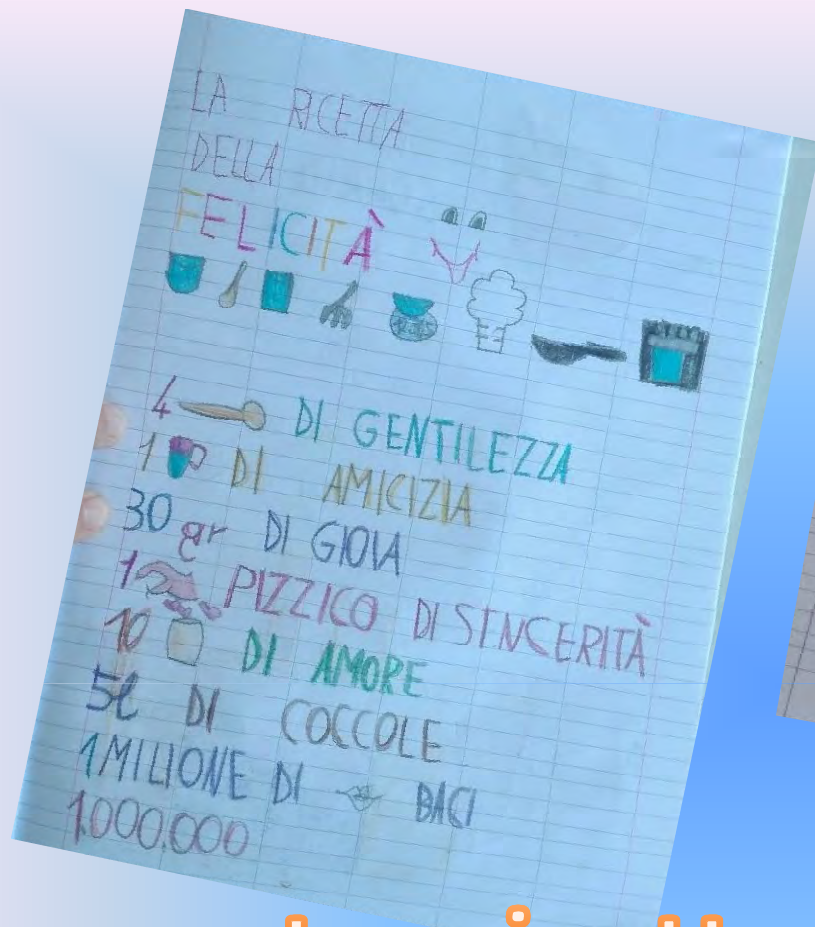 LA RICETTA
DELLA
FELICITÀ
4 DI GENTILEZZA
1 DI AMICIZIA
30 gr DI GIOIA
1 PIZZICO DI SINCERITÀ
10 DI AMORE
5l DI COCCOLE
1 MILIONE DI BACI
1.000.000